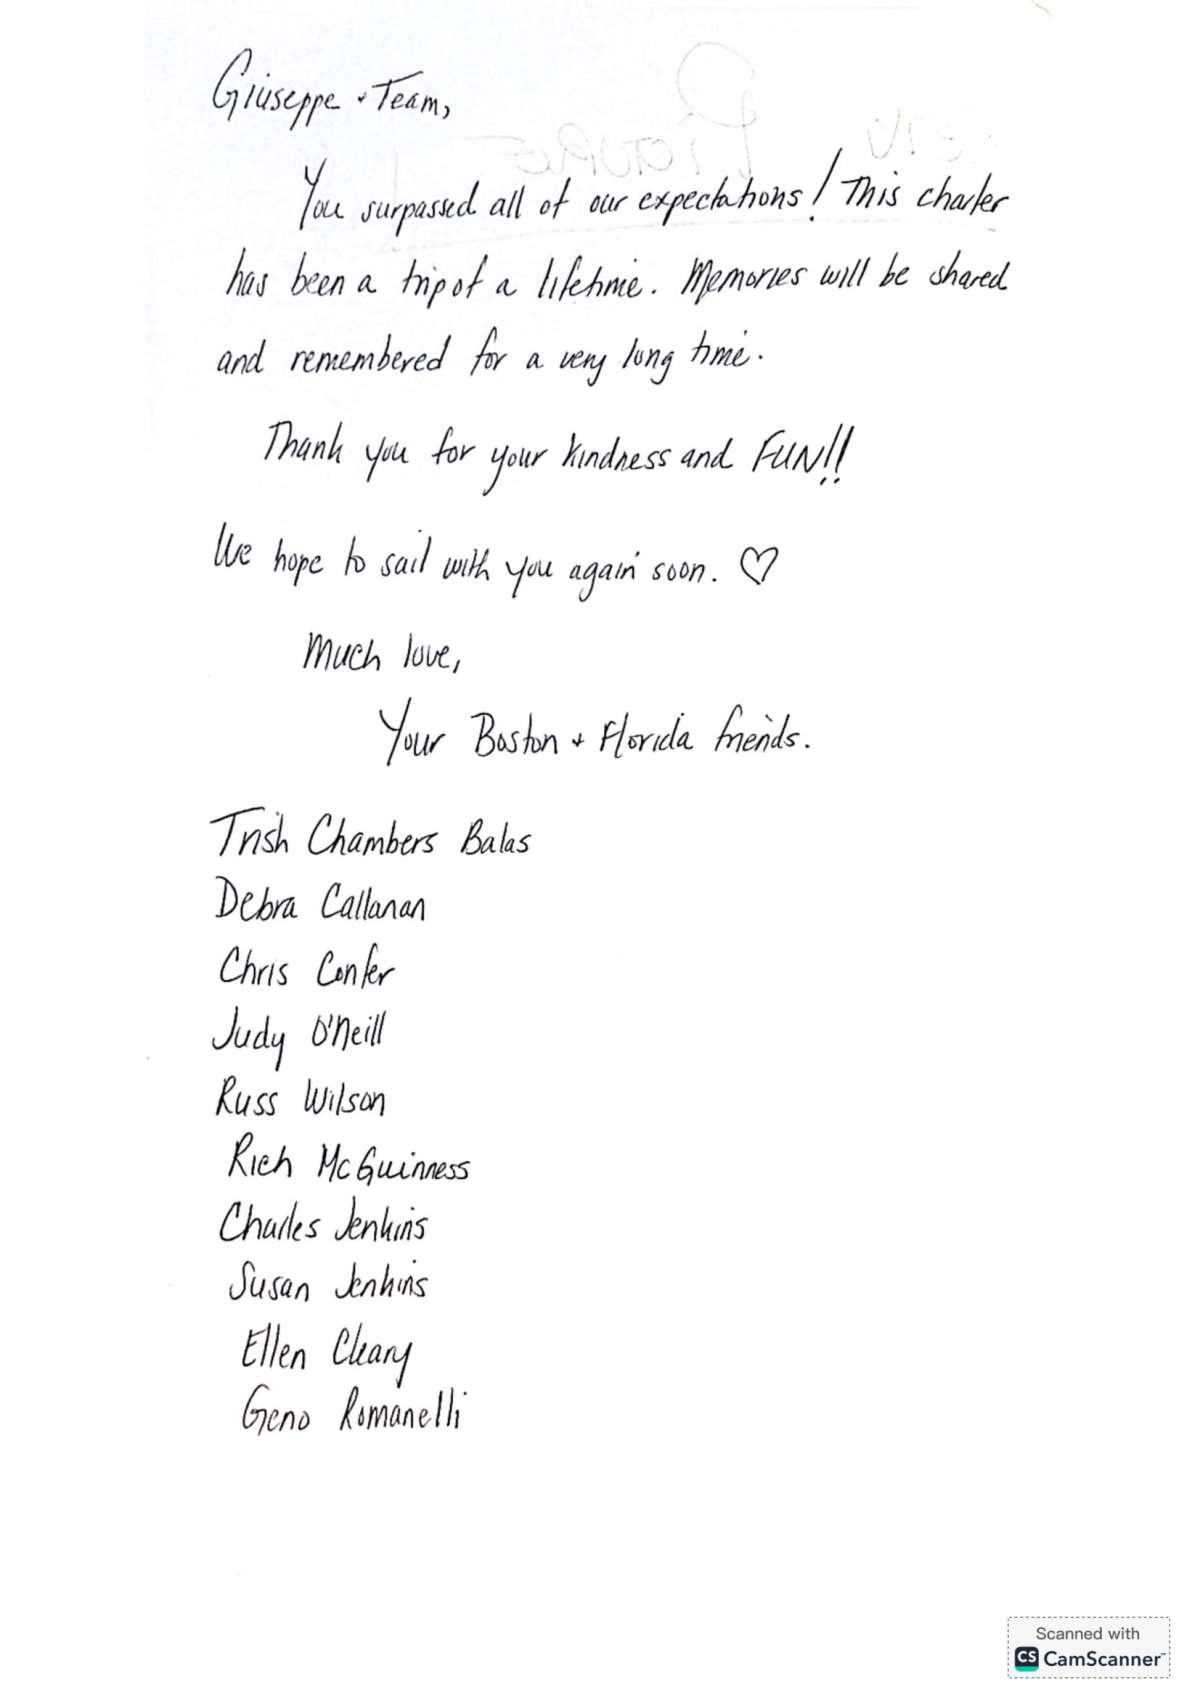 Giuseppe + Team,
You surpassed all of our expectations! This charter
has been a trip of a lifetime. Memories will be shared
and remembered for a very long time.
Thank you for your kindness and FUN!!
We hope to sail with you again soon. ♡
Much love,
Your Boston + Florida friends.
Trish Chambers Balas
Debra Callanan
Chris Confer
Judy O'Neill
Russ Wilson
Rich McGuinness
Charles Jenkins
Susan Jenkins
Ellen Cleary
Geno Romanelli
Scanned with
CS CamScanner